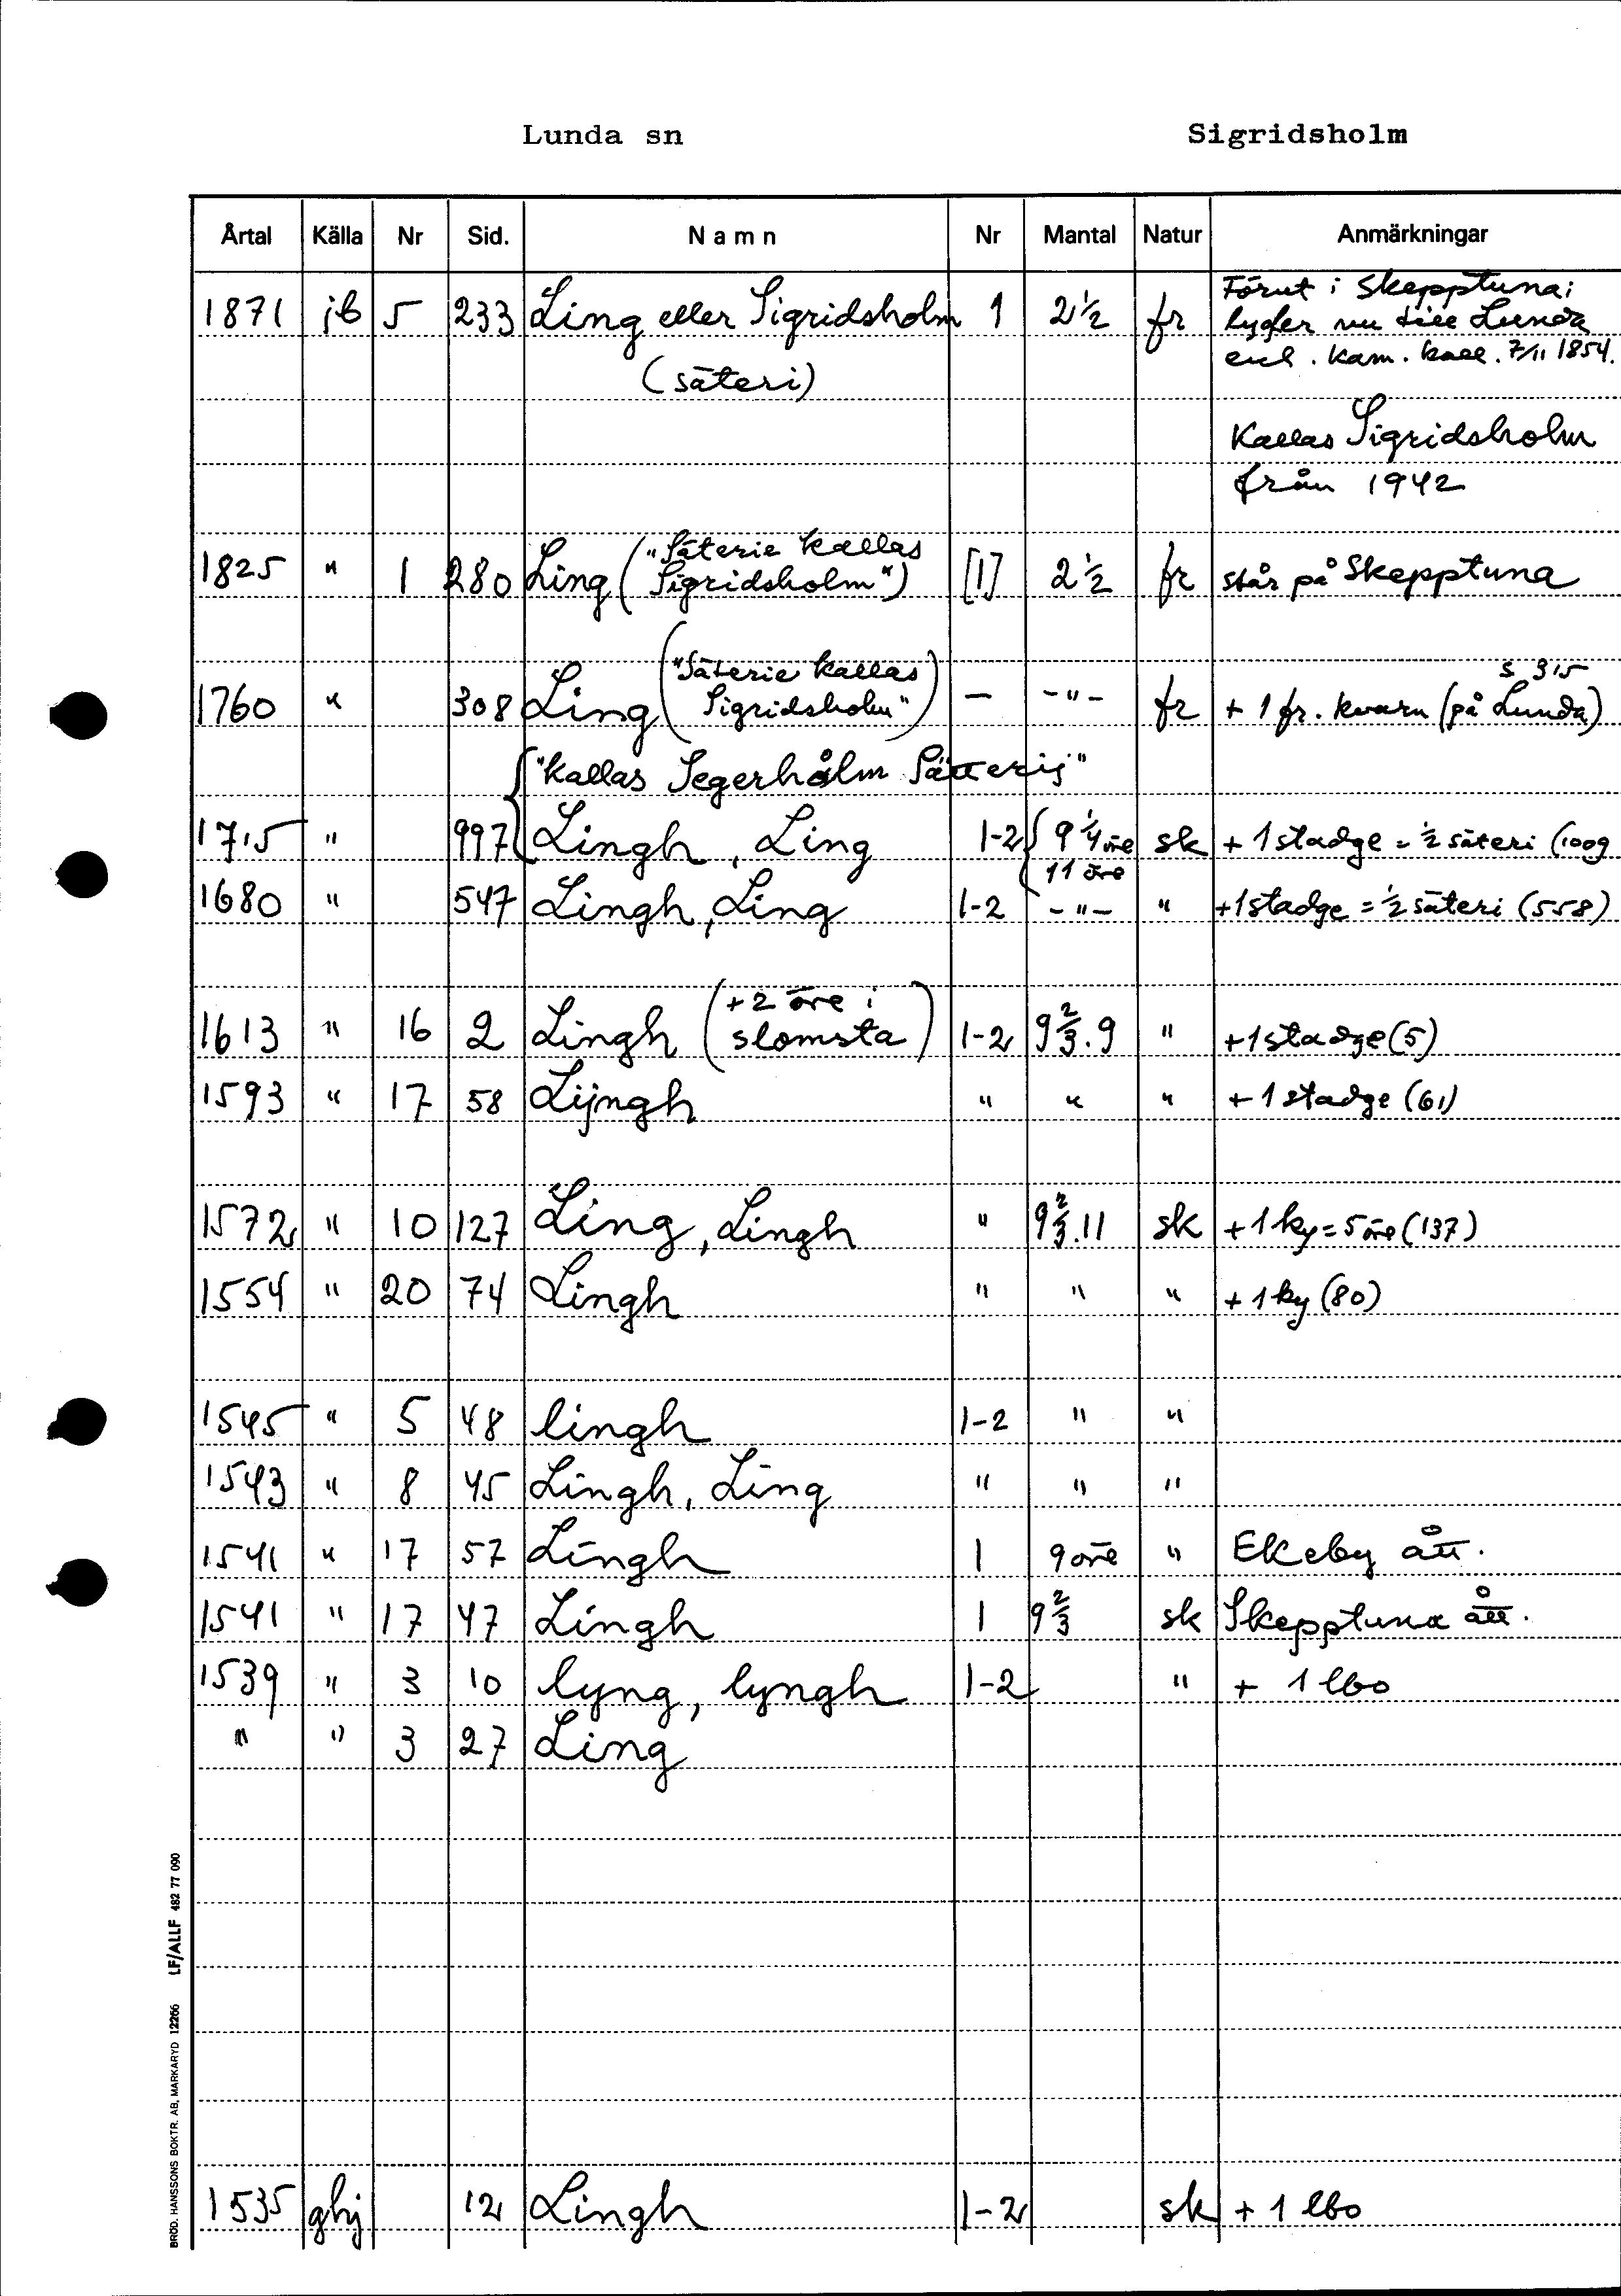 Lunda sn Sigridsholm
Årtal Källa Nr Sid. Namn Nr Mantal Natur Anmärkningar
1871 jb 5 233 Ling eller Sigridsholm 1 2 1/2 fr Förut i Skepptuna;
lyder nu till Lunda
(säteri) enl. kam. koll. 7/11 1854.
Kallas Sigridsholm
från 1942
1825 " 1 280 Ling ("Säterie kallas Sigridsholm") [1] 2 1/2 fr står på Skepptuna
1760 " 308 Ling ("Säterie kallas Sigridsholm") — -"- fr + 1 fr. kvarn (på Lunda) s 315
"kallas Segerhålm Sätterij"
1715 " 997 Lingh, Ling 1-2 9 1/4 öre sk + 1 stadge = 1/2 säteri (1009
11 öre
1680 " 547 Lingh, Ling 1-2 -"- " +1 stadge = 1/2 säteri (558)
1613 " 16 2 Lingh (+2 öre i slomsta) 1-2 9 2/3. 9 " +1 stadge (5)
1593 " 17 58 Lijngh " " " + 1 stadge (61)
1572 " 10 127 Ling, Lingh " 9 2/3. 11 sk + 1 ky = 5 öre (137)
1554 " 20 74 Lingh " " " + 1 ky (80)
1545 " 5 48 lingh 1-2 " "
1543 " 8 45 Lingh, Ling " " "
1541 " 17 57 Lingh 1 9 öre " Ekeby ått.
1541 " 17 47 Lingh 1 9 2/3 sk Skepptuna ått.
1539 " 3 10 lyng, lyngh 1-2 " + 1 lbo
" " 3 27 Ling
1535 ghj 12 Lingh 1-2 sk + 1 lbo
BRÖD. HANSSONS BOKTR. AB, MARKARYD 12266 LF/ALLF 482 77 090